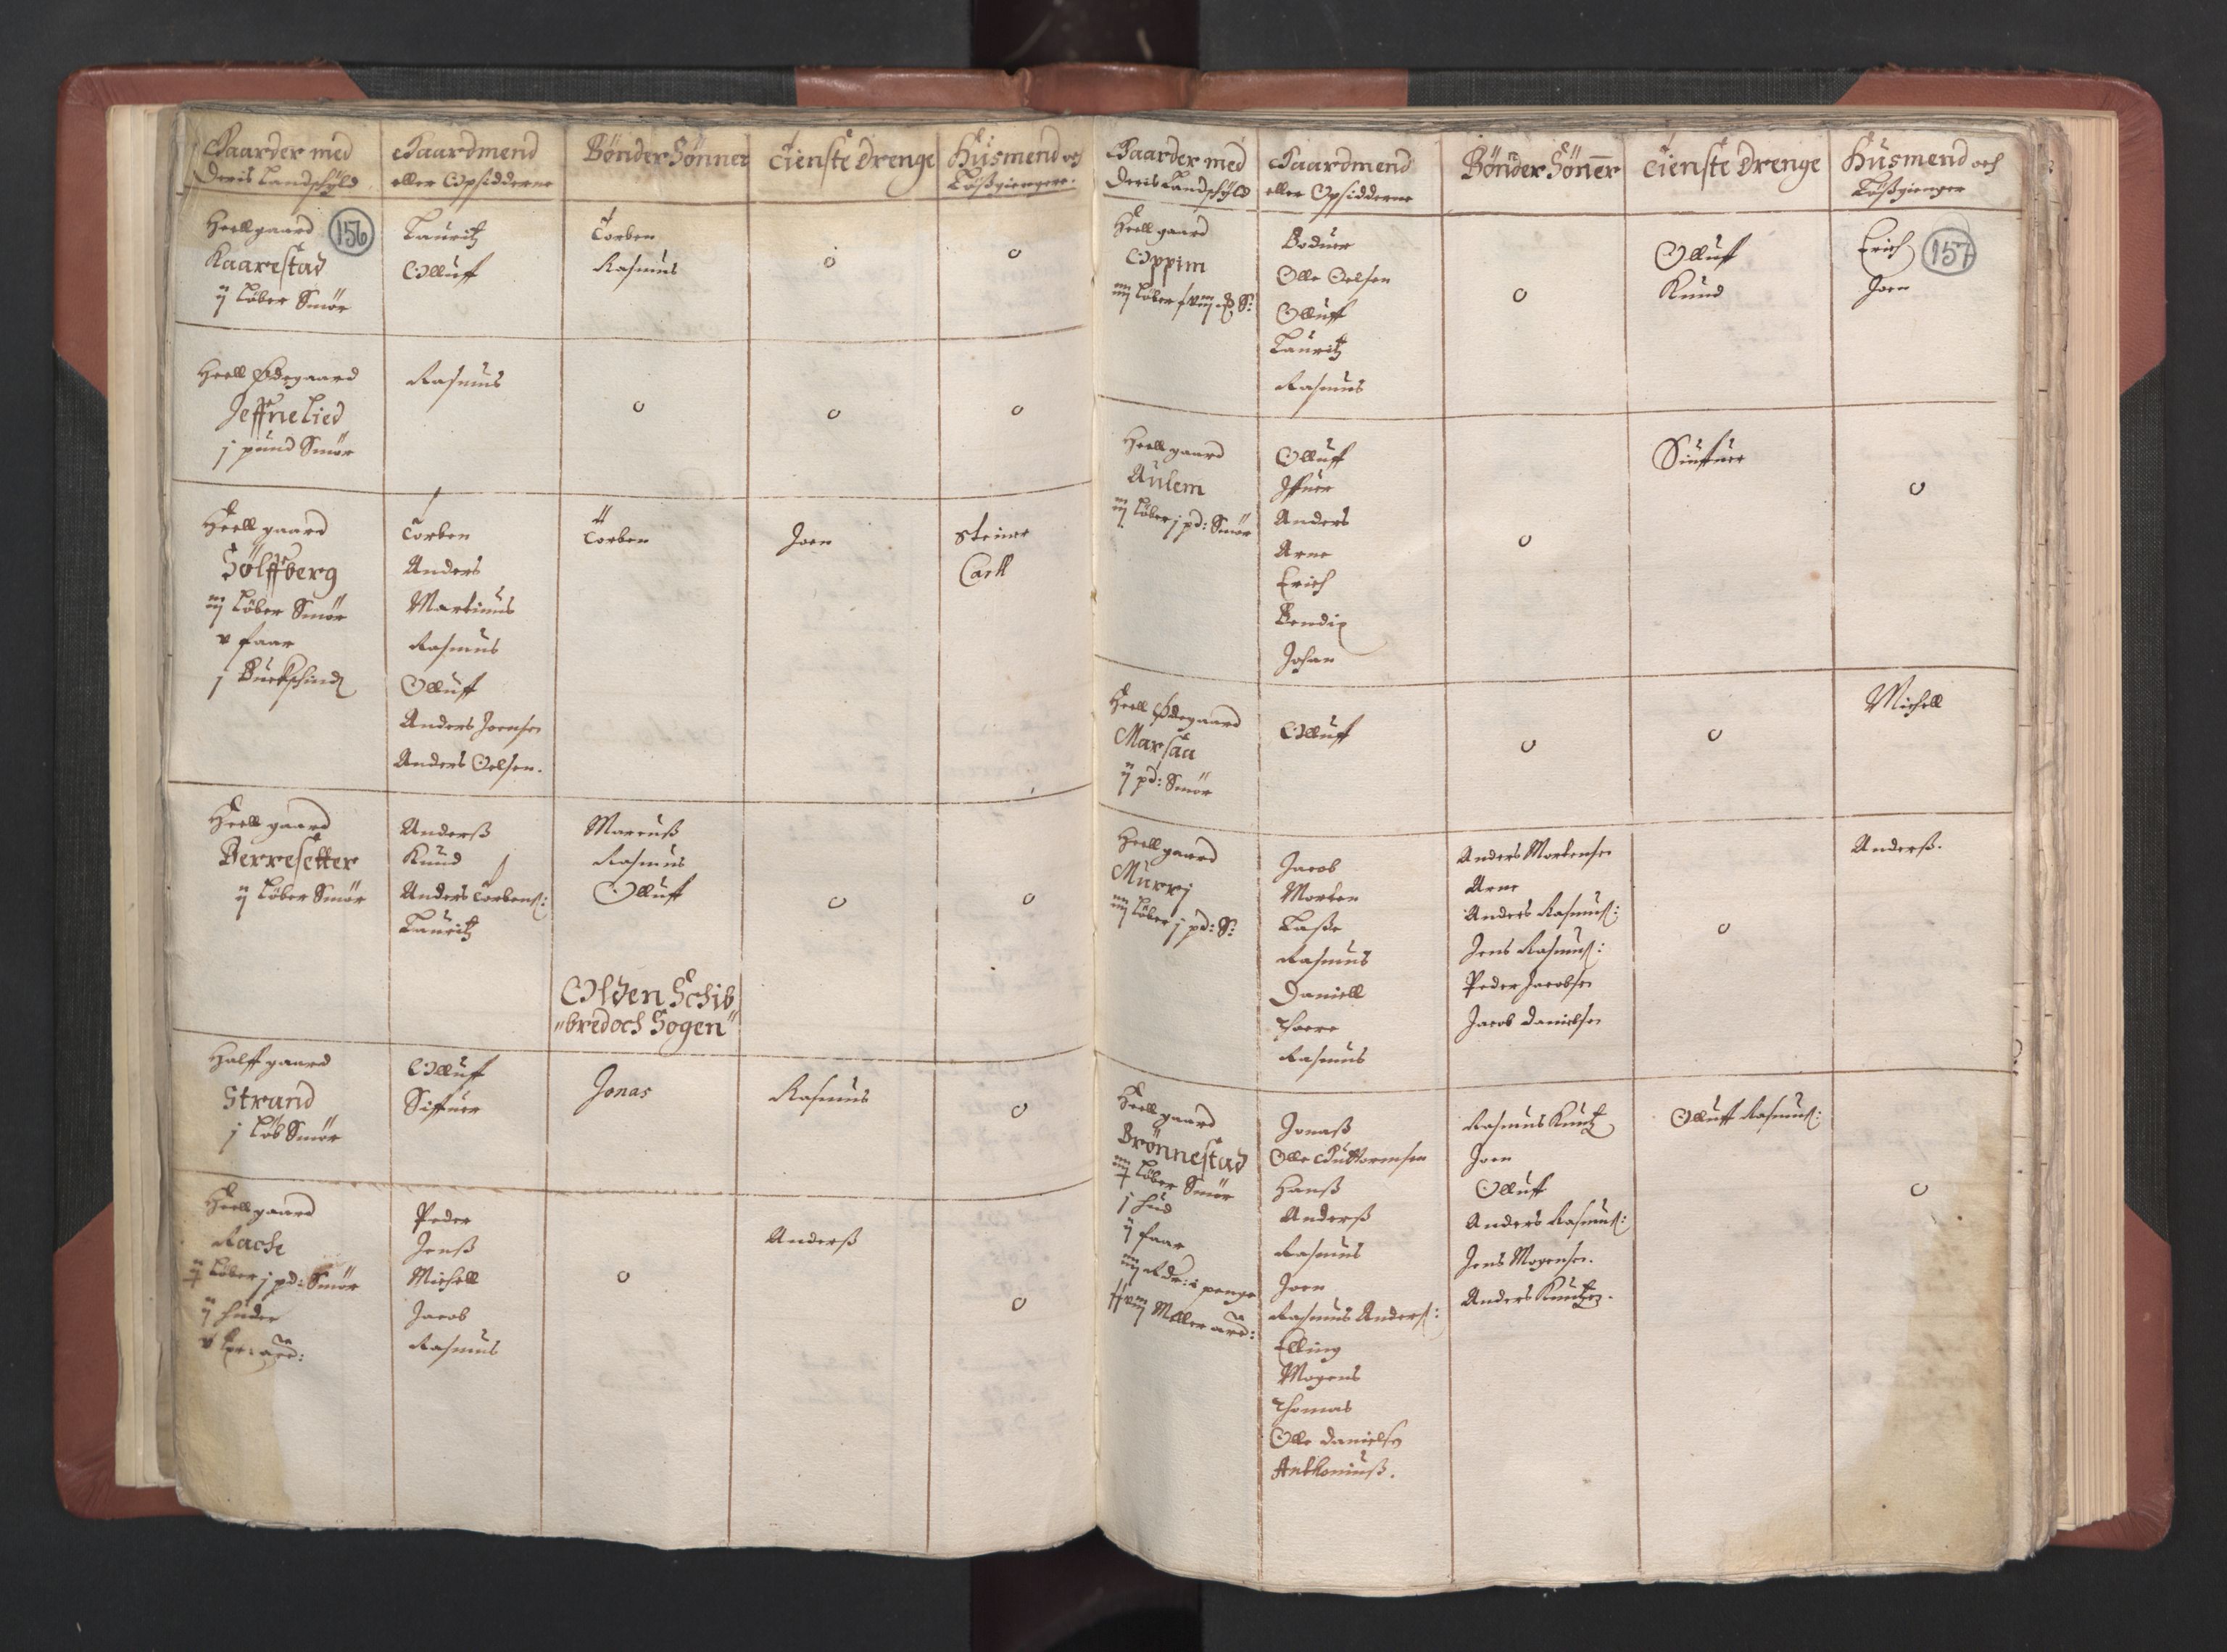 Gaarder med
Deris Landschÿld
Gaardmend
eller Opsidderne
BønderSønner
Tienste Drenge
Husmend och
Løßgiengere.
Heell gaard
Kaarestad
ij Løber Smør
156
Lauritz
Olluff
Torben
Rasmus
o
o
Heell Ødegaard
Jeffne Lied
j pund Smør
Rasmus
o
o
o
Heell gaard
Sølffberg
iiij Løber Smør
v faar
j Buckschind
Torben
Anders
Martinus
Rasmus
Olluff
Anders Joensen
Anders Oelsen.
Torben
Joen
Steiner
Carll
Heell gaard
Berresetter
ij Løber Smør
Anderß
Knud
Anders Torbens:
Lauritz
Marcuß
Rasmus
Olluff
o
o
Olden Schib
"bredoch Sogen"
Halff gaard
Strand
j Løb Smør
Olluff
Siffuer
Jonas
Rasmus
o
Heell gaard
Rache
Løber j pd: Smør
ij huder
Peder
Jenß
Michell
Jacob
Rasmus
o
Anderß
o
Gaarder med
Deris Landschÿld
Gaardmend
eller Opsidderne
Bønder Søner
Tienste Drenge
Husmend och
Løßgienger
Heell gaard
Oppim
Boduer
Olle Oelsen
Olluff
Lauritz
Rasmus
o
Olluff
Knud
Erich
Joen
157
Heell gaard
Aulem
iij Løber j pd: Smør
Olluff
Iffuer
Anders
Arne
Erich
Bendix
Johan
o
Siuffuer
o
Heell Ødegaard
Marsaa
ij pd: Smør
Olluff
o
o
Michell
Heell gaard
Murri
iiij Løber j pd: S:
Jacob
Morten
Laße
Rasmus
Daniell
Thore
Rasmus
Anders Mortensen
Arne
Anders Rasmus:
Jens Rasmus:
Peder Jacobsen
Jacob Danielsen
o
Anderß.
Heell gaard
Brønnestad
Løber Smør
j hud
ij faar
iiij Rdr: i penge
Meller
Jonaß
Olle Guttormsen
Hanß
Anderß
Rasmus
Joen
Rasmus Anders:
Elling
Mogens
Thomas
Olle Danielsen
Anthoniuß.
Rasmus Knutz
Joen
Olluff
Anders Rasmus:
Jens Mogensen.
Anders Knutzen.
Olluff Rasmus:
o